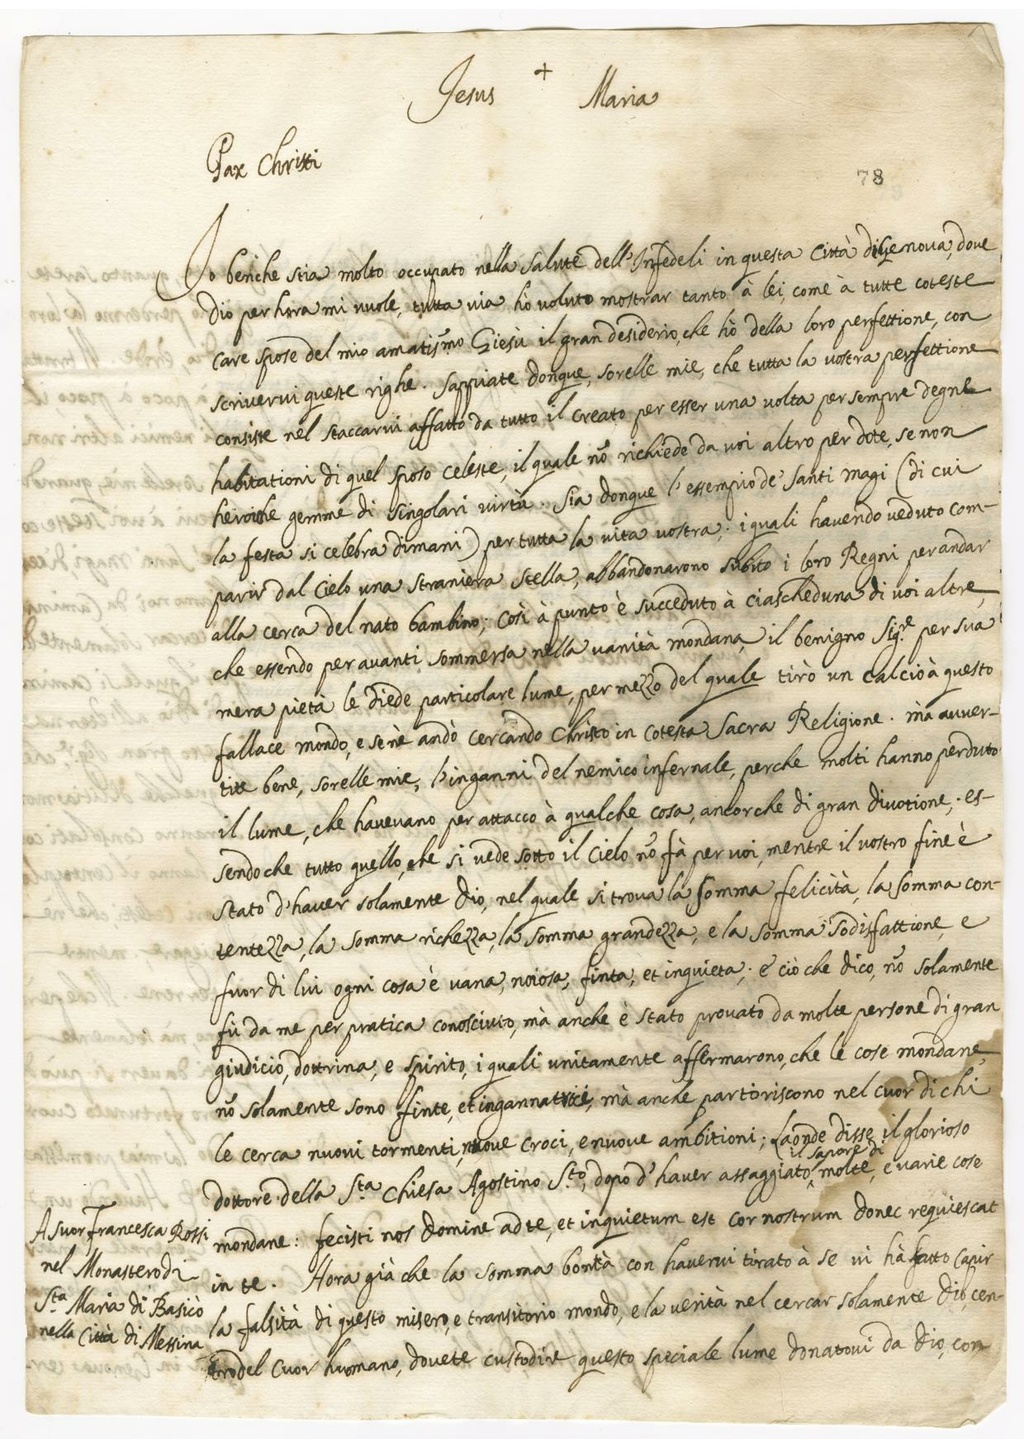 Jesus + Maria
Pax Christi
78
Io benche stia molto occupato nella salute dell'Infedeli in questa Città di Genova, dove
Dio per hora mi vuole, tutta via hò voluto mostrar tanto à lei, come à tutte coteste
care spose del mio amatis.mo Giesù il gran desiderio, che hò della loro perfettione, con
scrivervi queste righe. Sappiate donque, sorelle mie, che tutta la vostra perfettione
consiste nel staccarvi affatto da tutto il creato per esser una volta per sempre degne
habitationi di quel sposo celeste, il quale nō richiede da voi altro per dote, se non
heroiche gemme di singolari virtù. Sia donque l'essempio de' Santi Magi (di cui
la festa si celebra dimani) per tutta la vita vostra; i quali havendo veduto com-
parir dal Cielo una straniera stella, abbandonarono subito i loro Regni per andar
alla cerca del nato bambino; Così à punto è succeduto à ciascheduna di voi altre,
che essendo per avanti sommersa nella vanità mondana, il benigno Sig.re per sua
mera pietà le diede particolare lume, per mezzo del quale tirò un calcio à questo
fallace mondo, e se nè andò cercando Christo in cotesta Sacra Religione. mà avver-
tite bene, sorelle mie, l'inganni del nemico infernale, perche molti hanno perduto
il lume, che havevano per attacco à qualche cosa, ancorche di gran divotione; es-
sendo che tutto quello, che si vede sotto il Cielo, nō fà per voi, mentre il vostro fine è
stato d'haver solamente Dio, nel quale si trova la somma felicità, la somma con-
tentezza, la somma richezza, la somma grandezza, e la somma sodisfattione, e
fuor di lui ogni cosa è vana, noiosa, finta, et inquieta; e ciò che dico, nō solamente
fù da me per pratica conosciuto, mà anche è stato provato da molte persone di gran
giudicio, dottrina, e spirito, i quali unitamente affermarono, che le cose mondane,
nō solamente sono finte, et ingannatrici, mà anche partoriscono nel cuor di chi
le cerca nuovi tormenti, nuove croci, e nuove ambitioni; Laonde disse il glorioso
dottore della S.ta Chiesa Agostino S.to, dopo d'haver assaggiato il sapore di molte, e varie cose
mondane: fecisti nos Domine ad te, et inquietum est cor nostrum donec requiescat
in te. Hora già che la somma bontà con havervi tirato à se vi hà fatto capir
la falsità di questo misero, e transitorio mondo, e la verità nel cercar solamente Dio, cen-
tro del cuor humano, dovete custodire questo speciale lume donatovi da Dio, con
A Suor Francesca Rossi
nel Monastero di
S.ta Maria di Basicò
nella Città di Messina